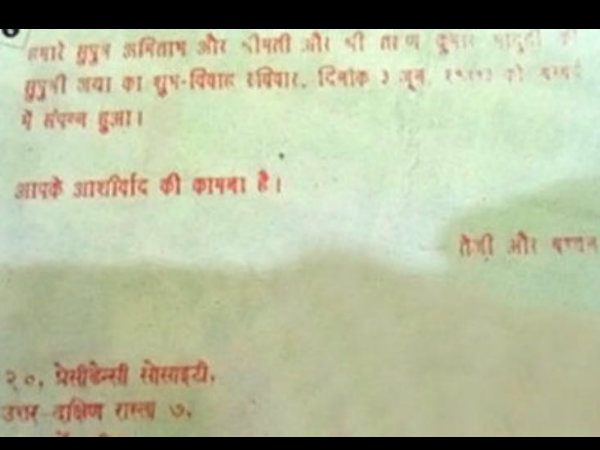 हमारे सुपुत्र अमिताभ और श्रीमती और श्री तरुण कुमार भादुड़ी की
सुपुत्री जया का शुभ-विवाह रविवार, दिनांक ३ जून, १९७३ को बम्बई
में संपन्न हुआ।
आपके आशीर्वाद की कामना है।
तेजी और बच्चन
२०, प्रेसीडेन्सी सोसाइटी,
उत्तर-दक्षिण रास्ता ७,